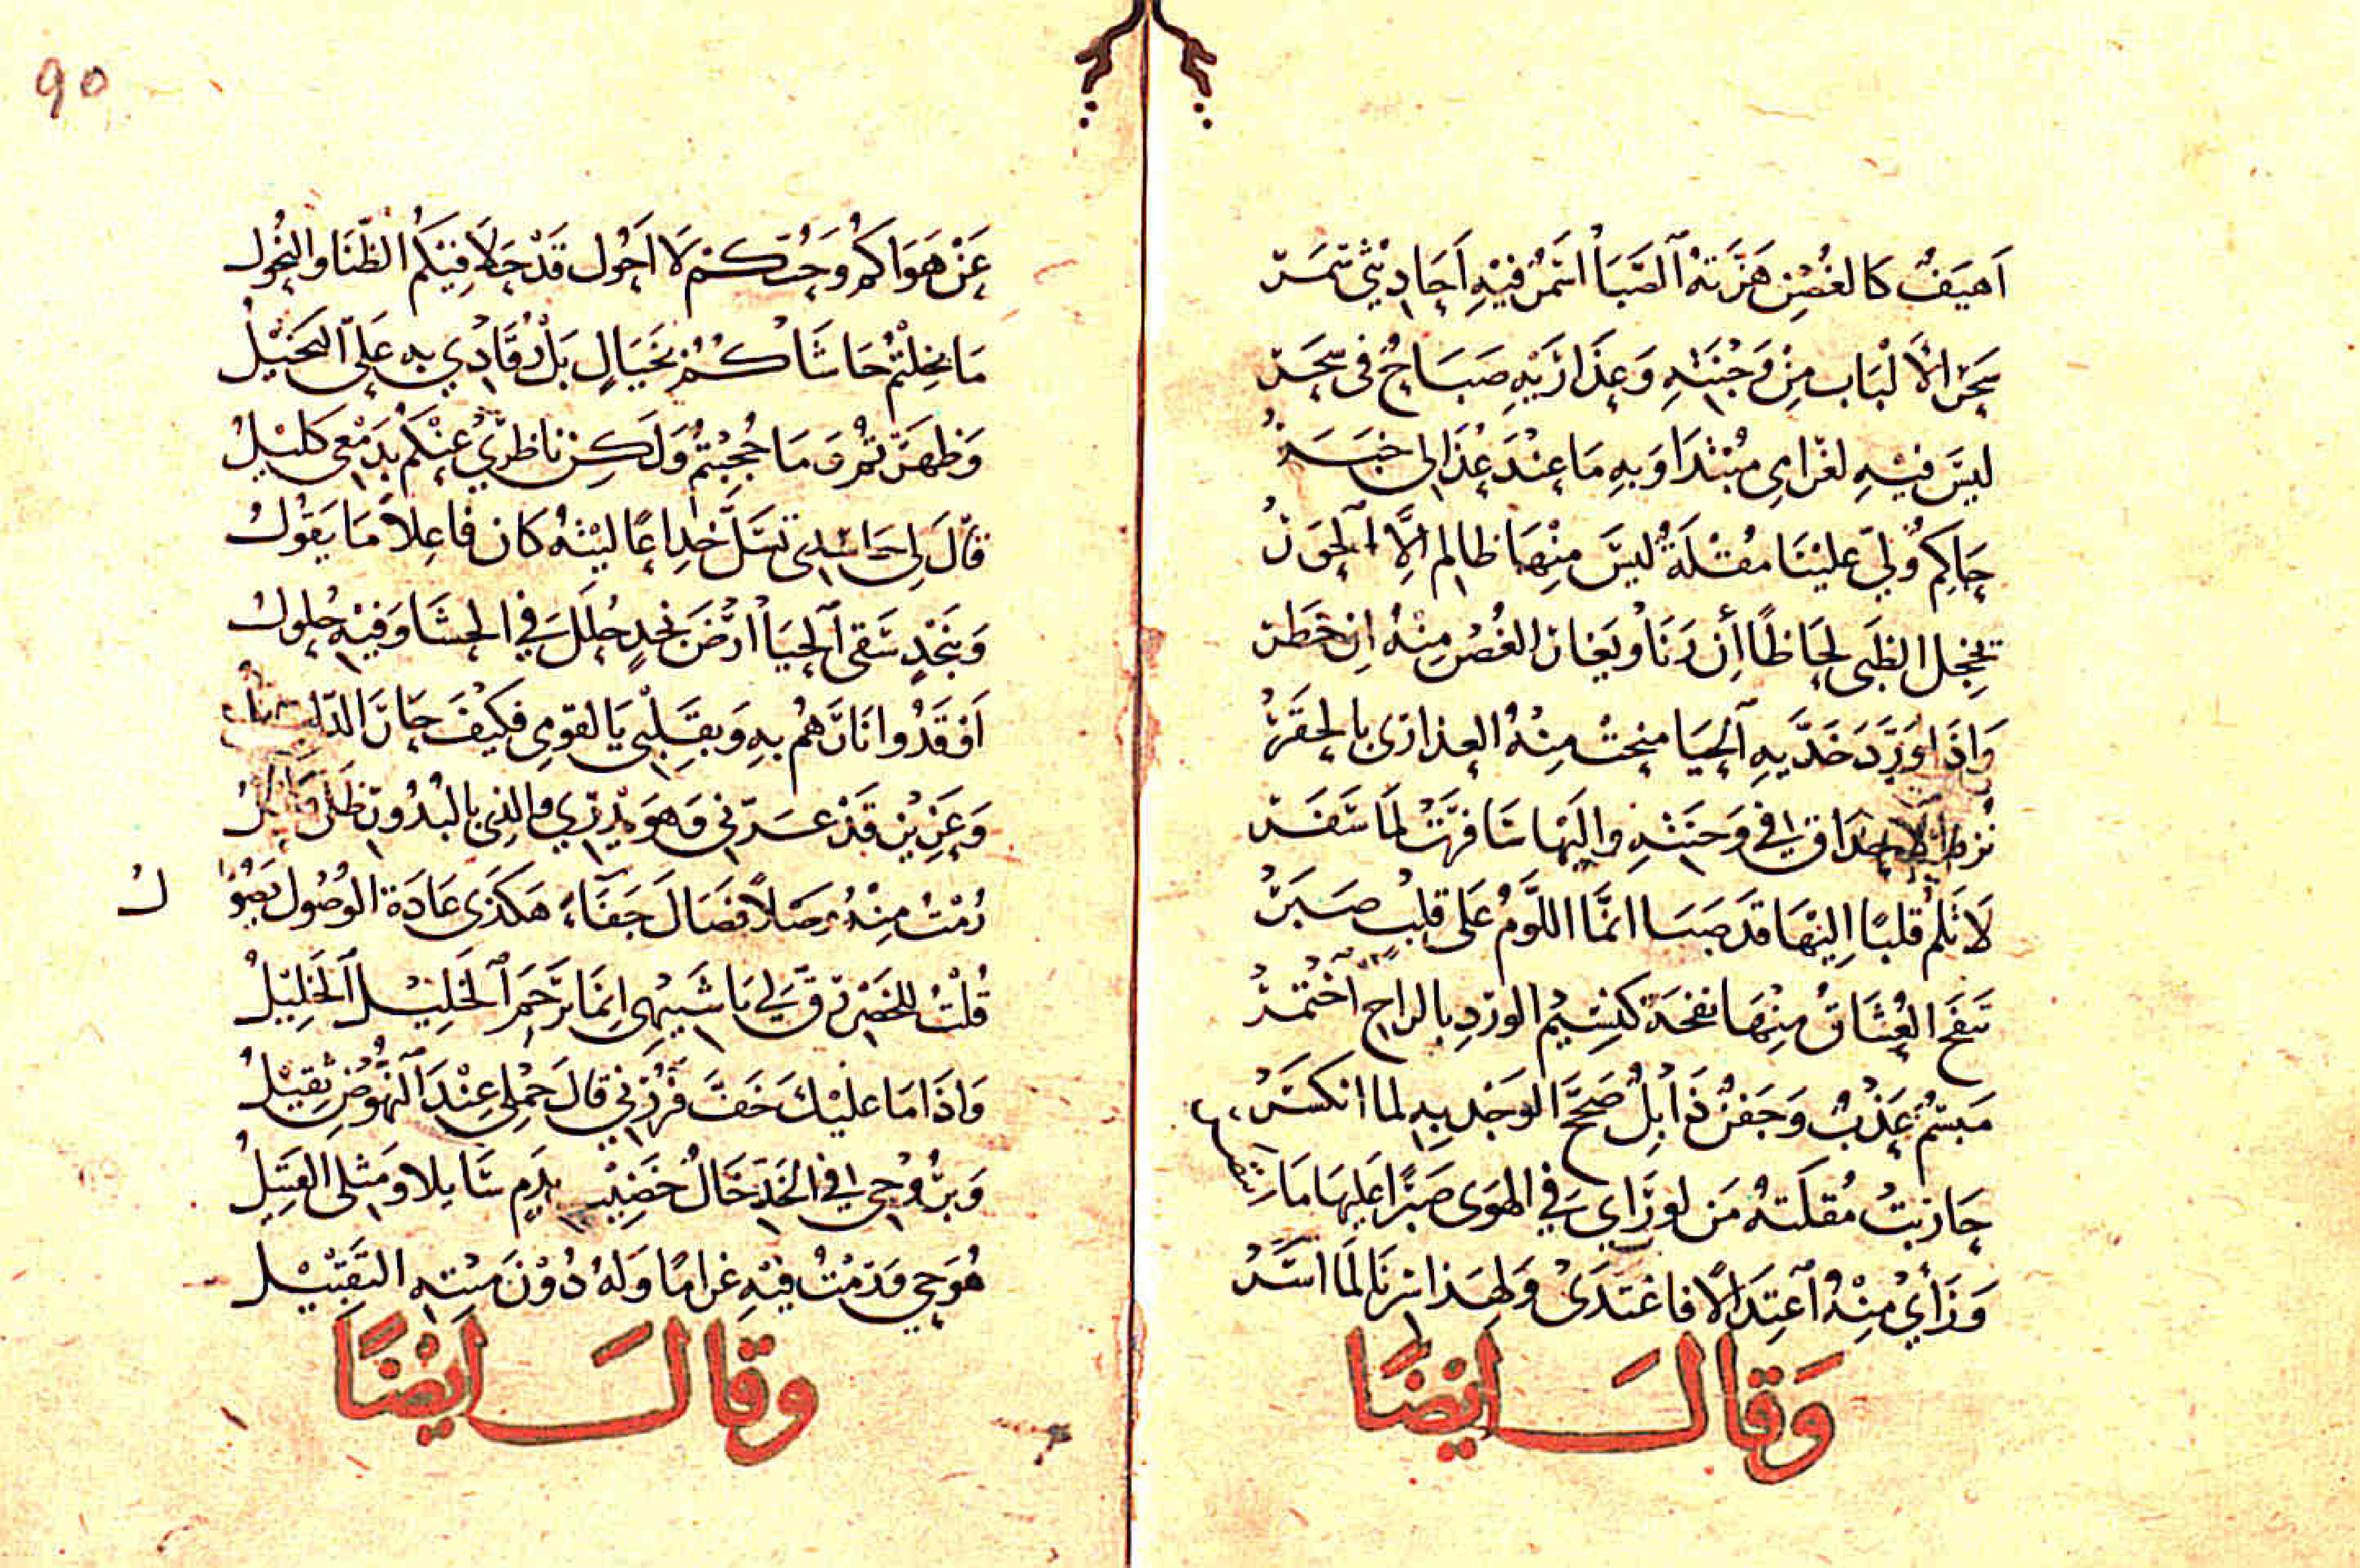 اَهيَفٌ كالغُصْنِ هَزَّتهُ ٱلصَّبَا اثمرُ فيْهِ اَحَادِيْثى ثمَرْ
سَحَرَ الْاَلْبَاب مِنْ وَجْنَتِهِ وَعِذَارَيْهِ صبَاحٌ فى سَحَرْ
ليسَ فيْهِ لغَرَامِى مبْتدَا وَبِهِ مَا عِنْدَ عُذَالِى خبَرْ
حَاكِمٌ وُلِيّ عليْنَا مُقْلَةً ليسَ مِنْهَا ظالم اِلَّا ٱلحَوَرْ
تخجل الظَبَى لِحَاظًا أن رَنَا وَيَغارُ الغُصْنُ مِنْهُ اِن خطَرْ
وَاِذَا وَرَّدَ خَدَّيهِ ٱلحَيَا منحتْ مِنْهُ العِذارَى بالحقَرْ
الاحدَاق فِي وَجنَتهِ واليْها سَافرَتْ لمَا سَفَرْ
لَا تَلُمْ قلبًا اِليْهَا قَد صَبَا انمَّا اللَّوْمُ عَلى قلبٍ صَبَرْ
تنفحَ العُشَاقُ مِنْهَا نفحَة كنسِيْم الوردِ بالراحِ ٱخْتمرْ
مَبْسَمٌ عَذْبٌ وَجَفنٌ ذَابِلٌ صَحَّ الوَجْد بِهِ لما انكسَرْ
حَاربَتْ مُقلَتهُ مَن لورَاى فِي الهوَى صَبْرًا عَليهَا مَا
وَرَأي مِنْهُ ٱعتِدَالًا فاغتدَى وَلِهذا سِرنَا لَمَا اسَرْ
وَقالَ ايْضًا
٩٥
عَنْ هَوَاكُمْ وَحُبّكُمْ لَا اَحُول قَدْ حَلَا فِيْكُمُ الظّنَا والنُحُول
مَا بَخِلتُمْ حَاشَاكُمْ بخَيَالٍ بَلْ رُقَادِي بِهِ عَلَيَّ البَخيْلُ
وَظهَرْتمُ وَمَا حُجِبْتُمْ وَلَكِنْ ناظرِيْ عنْكُمُ بدَمْعِى كليْلُ
قالَ لِى حَاسِدِى تسَلَّ خدَاعًا ليْتهُ كَان فاعِلًا مَا يَقوْلُ
وَبنَجْدٍ سَقى ٱلحيَا ارْضَ نجدٍ حللَ فِي الحشَا وَفيْهِ حُلولُ
اَوْقَدُوا نَارَهُمْ بِهِ وَبقَلْبِي يَا لقوْمِى فكيْفَ حَارَ الدّليلُ
وَغَرِيْنٍ قَدْ غرَّنِي وَهوَ يدْرِي والذِى بالبُدُورِ ظلّ
رُمْتُ مِنْهُ وَصَلًا فصَالَ جَفَاءً هَكذَى عَادَة الوُصُول يَصُوْلُ
قلْتُ للخَصْرِ رقَّ لي يا شَبِيهى اِنمَا يَرْحَمُ ٱلخَلِيْلَ ٱلخَلِيْلُ
وَاِذَا مَا عليْكَ خَفَّ فَزُرْنِي قالَ حِمْلِى عِنْدَ ٱلنّهُوْضِ ثقِيْلُ
وَبرُوْحِي فِي الخَدّ خَالٌ خَضِيْبٌ بدَمٍ سَايلا وَمِثلى القتِيْلُ
هُوَ حيّ وَمْتُ فيْهِ غرَامًا وَلهُ دُوْنَ مِيْتِهِ التقبِيْل
وقالَ ايْضًا